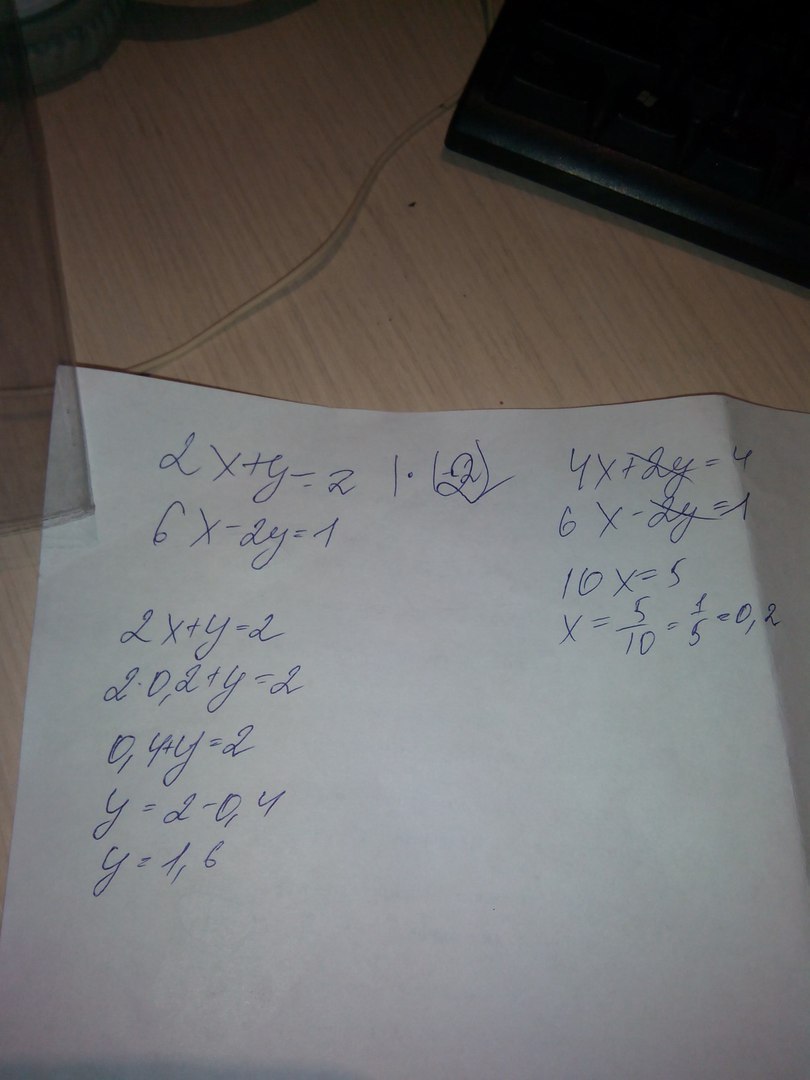 2x+y=2 | · (2)
6x-2y=1
2x+y=2
2·0,2+y=2
0,4+y=2
y=2-0,4
y=1,6
4x+2y=4
6x-2y=1
10x=5
x=5/10=1/5=0,2